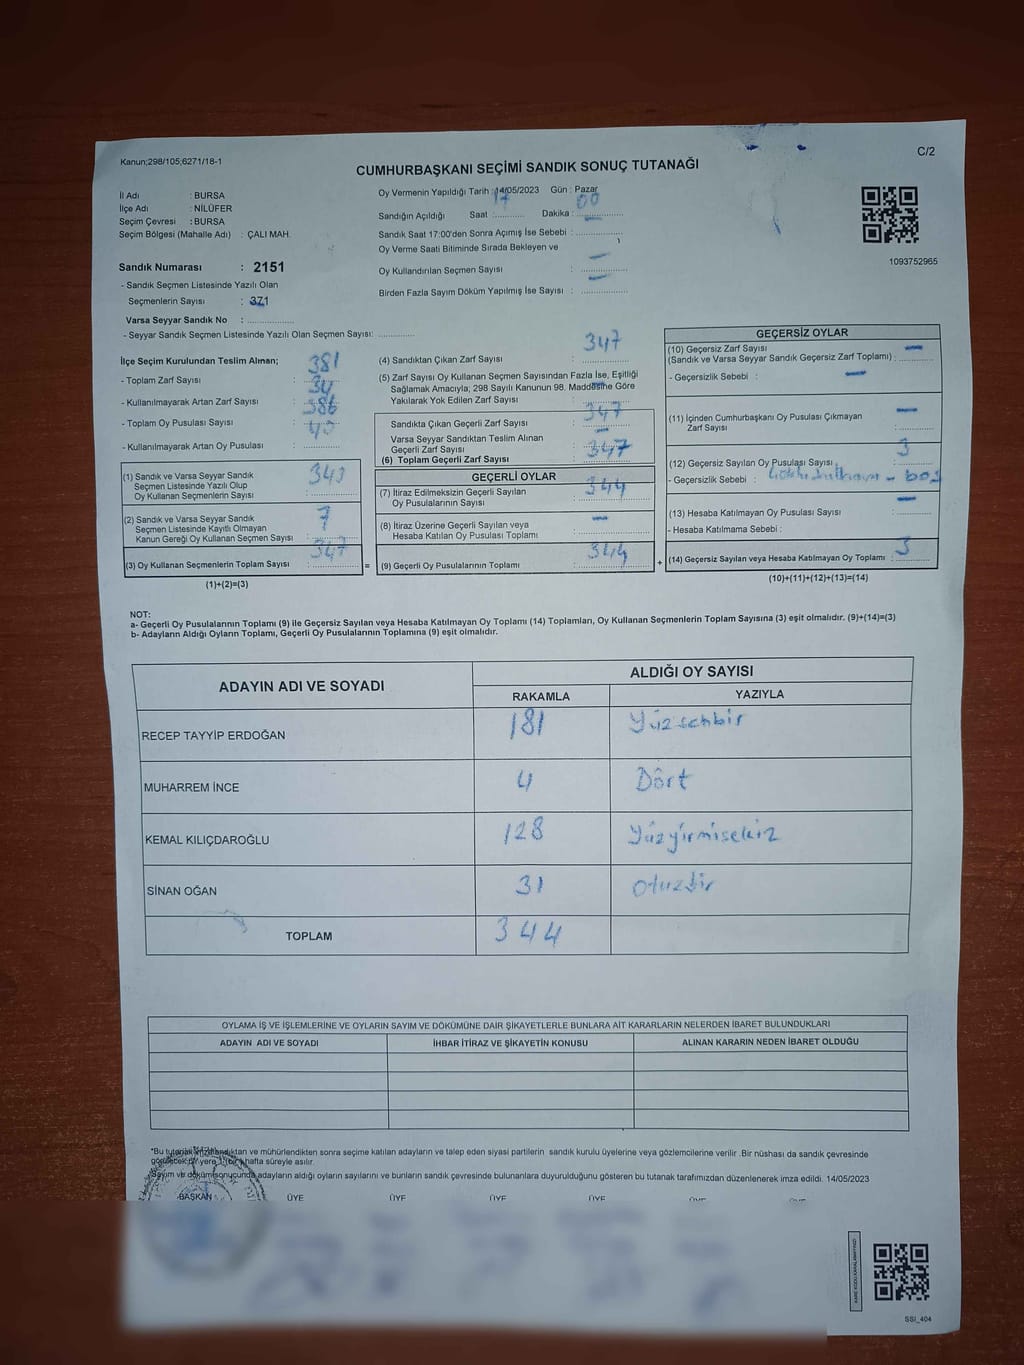 Kanun;298/105;6271/18-1
C/2
CUMHURBAŞKANI SEÇİMİ SANDIK SONUÇ TUTANAĞI
İl Adı : BURSA
İlçe Adı : NİLÜFER
Seçim Çevresi : BURSA
Seçim Bölgesi (Mahalle Adı) : ÇALI MAH.
Sandık Numarası : 2151
- Sandık Seçmen Listesinde Yazılı Olan
Seçmenlerin Sayısı : 371
Varsa Seyyar Sandık No : ..............
- Seyyar Sandık Seçmen Listesinde Yazılı Olan Seçmen Sayısı: ............
Oy Vermenin Yapıldığı Tarih :14/05/2023 Gün : Pazar
Sandığın Açıldığı Saat : 17 Dakika : 00
Sandık Saat 17:00'den Sonra Açımış İse Sebebi : —
Oy Verme Saati Bitiminde Sırada Bekleyen ve
Oy Kullandırılan Seçmen Sayısı : —
Birden Fazla Sayım Döküm Yapılmış İse Sayısı : —
1093752965
İlçe Seçim Kurulundan Teslim Alınan;
- Toplam Zarf Sayısı : 381
- Kullanılmayarak Artan Zarf Sayısı : 34
- Toplam Oy Pusulası Sayısı : 386
- Kullanılmayarak Artan Oy Pusulası : 40
(1) Sandık ve Varsa Seyyar Sandık
Seçmen Listesinde Yazılı Olup
Oy Kullanan Seçmenlerin Sayısı : 340
(2) Sandık ve Varsa Seyyar Sandık
Seçmen Listesinde Kayıtlı Olmayan
Kanun Gereği Oy Kullanan Seçmen Sayısı : 7
(3) Oy Kullanan Seçmenlerin Toplam Sayısı : 347
(1)+(2)=(3)
(4) Sandıktan Çıkan Zarf Sayısı : 347
(5) Zarf Sayısı Oy Kullanan Seçmen Sayısından Fazla İse, Eşitliği
Sağlamak Amacıyla; 298 Sayılı Kanunun 98. Maddesine Göre
Yakılarak Yok Edilen Zarf Sayısı : —
Sandıkta Çıkan Geçerli Zarf Sayısı : 347
Varsa Seyyar Sandıktan Teslim Alınan
Geçerli Zarf Sayısı : —
(6) Toplam Geçerli Zarf Sayısı : 347
GEÇERLİ OYLAR
(7) İtiraz Edilmeksizin Geçerli Sayılan
Oy Pusulasının Sayısı : 344
(8) İtiraz Üzerine Geçerli Sayılan veya
Hesaba Katılan Oy Pusulası Toplamı : —
= (9) Geçerli Oy Pusulalarının Toplamı : 344 +
GEÇERSİZ OYLAR
(10) Geçersiz Zarf Sayısı
(Sandık ve Varsa Seyyar Sandık Geçersiz Zarf Toplamı) : —
- Geçersizlik Sebebi : —
(11) İçinden Cumhurbaşkanı Oy Pusulası Çıkmayan
Zarf Sayısı : —
(12) Geçersiz Sayılan Oy Pusulası Sayısı : 3
- Geçersizlik Sebebi : - boş
(13) Hesaba Katılmayan Oy Pusulası Sayısı : —
- Hesaba Katılmama Sebebi :
(14) Geçersiz Sayılan veya Hesaba Katılmayan Oy Toplamı : 3
(10)+(11)+(12)+(13)=(14)
NOT:
a- Geçerli Oy Pusulalarının Toplamı (9) ile Geçersiz Sayılan veya Hesaba Katılmayan Oy Toplamı (14) Toplamları, Oy Kullanan Seçmenlerin Toplam Sayısına (3) eşit olmalıdır. (9)+(14)=(3)
b- Adayların Aldığı Oyların Toplamı, Geçerli Oy Pusulalarının Toplamına (9) eşit olmalıdır.
ADAYIN ADI VE SOYADI
ALDIĞI OY SAYISI
RAKAMLA YAZIYLA
RECEP TAYYİP ERDOĞAN 181 Yüzsenbir
MUHARREM İNCE 4 Dört
KEMAL KILIÇDAROĞLU 128 Yüzyirmisekiz
SİNAN OĞAN 31 Otuzbir
TOPLAM 344
OYLAMA İŞ VE İŞLEMLERİNE VE OYLARIN SAYIM VE DÖKÜMÜNE DAİR ŞİKAYETLERLE BUNLARA AİT KARARLARIN NELERDEN İBARET BULUNDUKLARI
ADAYIN ADI VE SOYADI İHBAR İTİRAZ VE ŞİKAYETİN KONUSU ALINAN KARARIN NEDEN İBARET OLDUĞU
*Bu tutanak imzalandıktan ve mühürlendikten sonra seçime katılan adayların ve talep eden siyasi partilerin sandık kurulu üyelerine veya gözlemcilerine verilir .Bir nüshası da sandık çevresinde
görülecek bir yere 1 (bir) hafta süreyle asılır.
Sayım ve döküm sonucunda adayların aldığı oyların sayılarını ve bunların sandık çevresinde bulunanlara duyurulduğunu gösteren bu tutanak tarafımızdan düzenlenerek imza edildi. 14/05/2023
BAŞKAN ÜYE ÜYE ÜYE ÜYE ÜYE
SSI_404